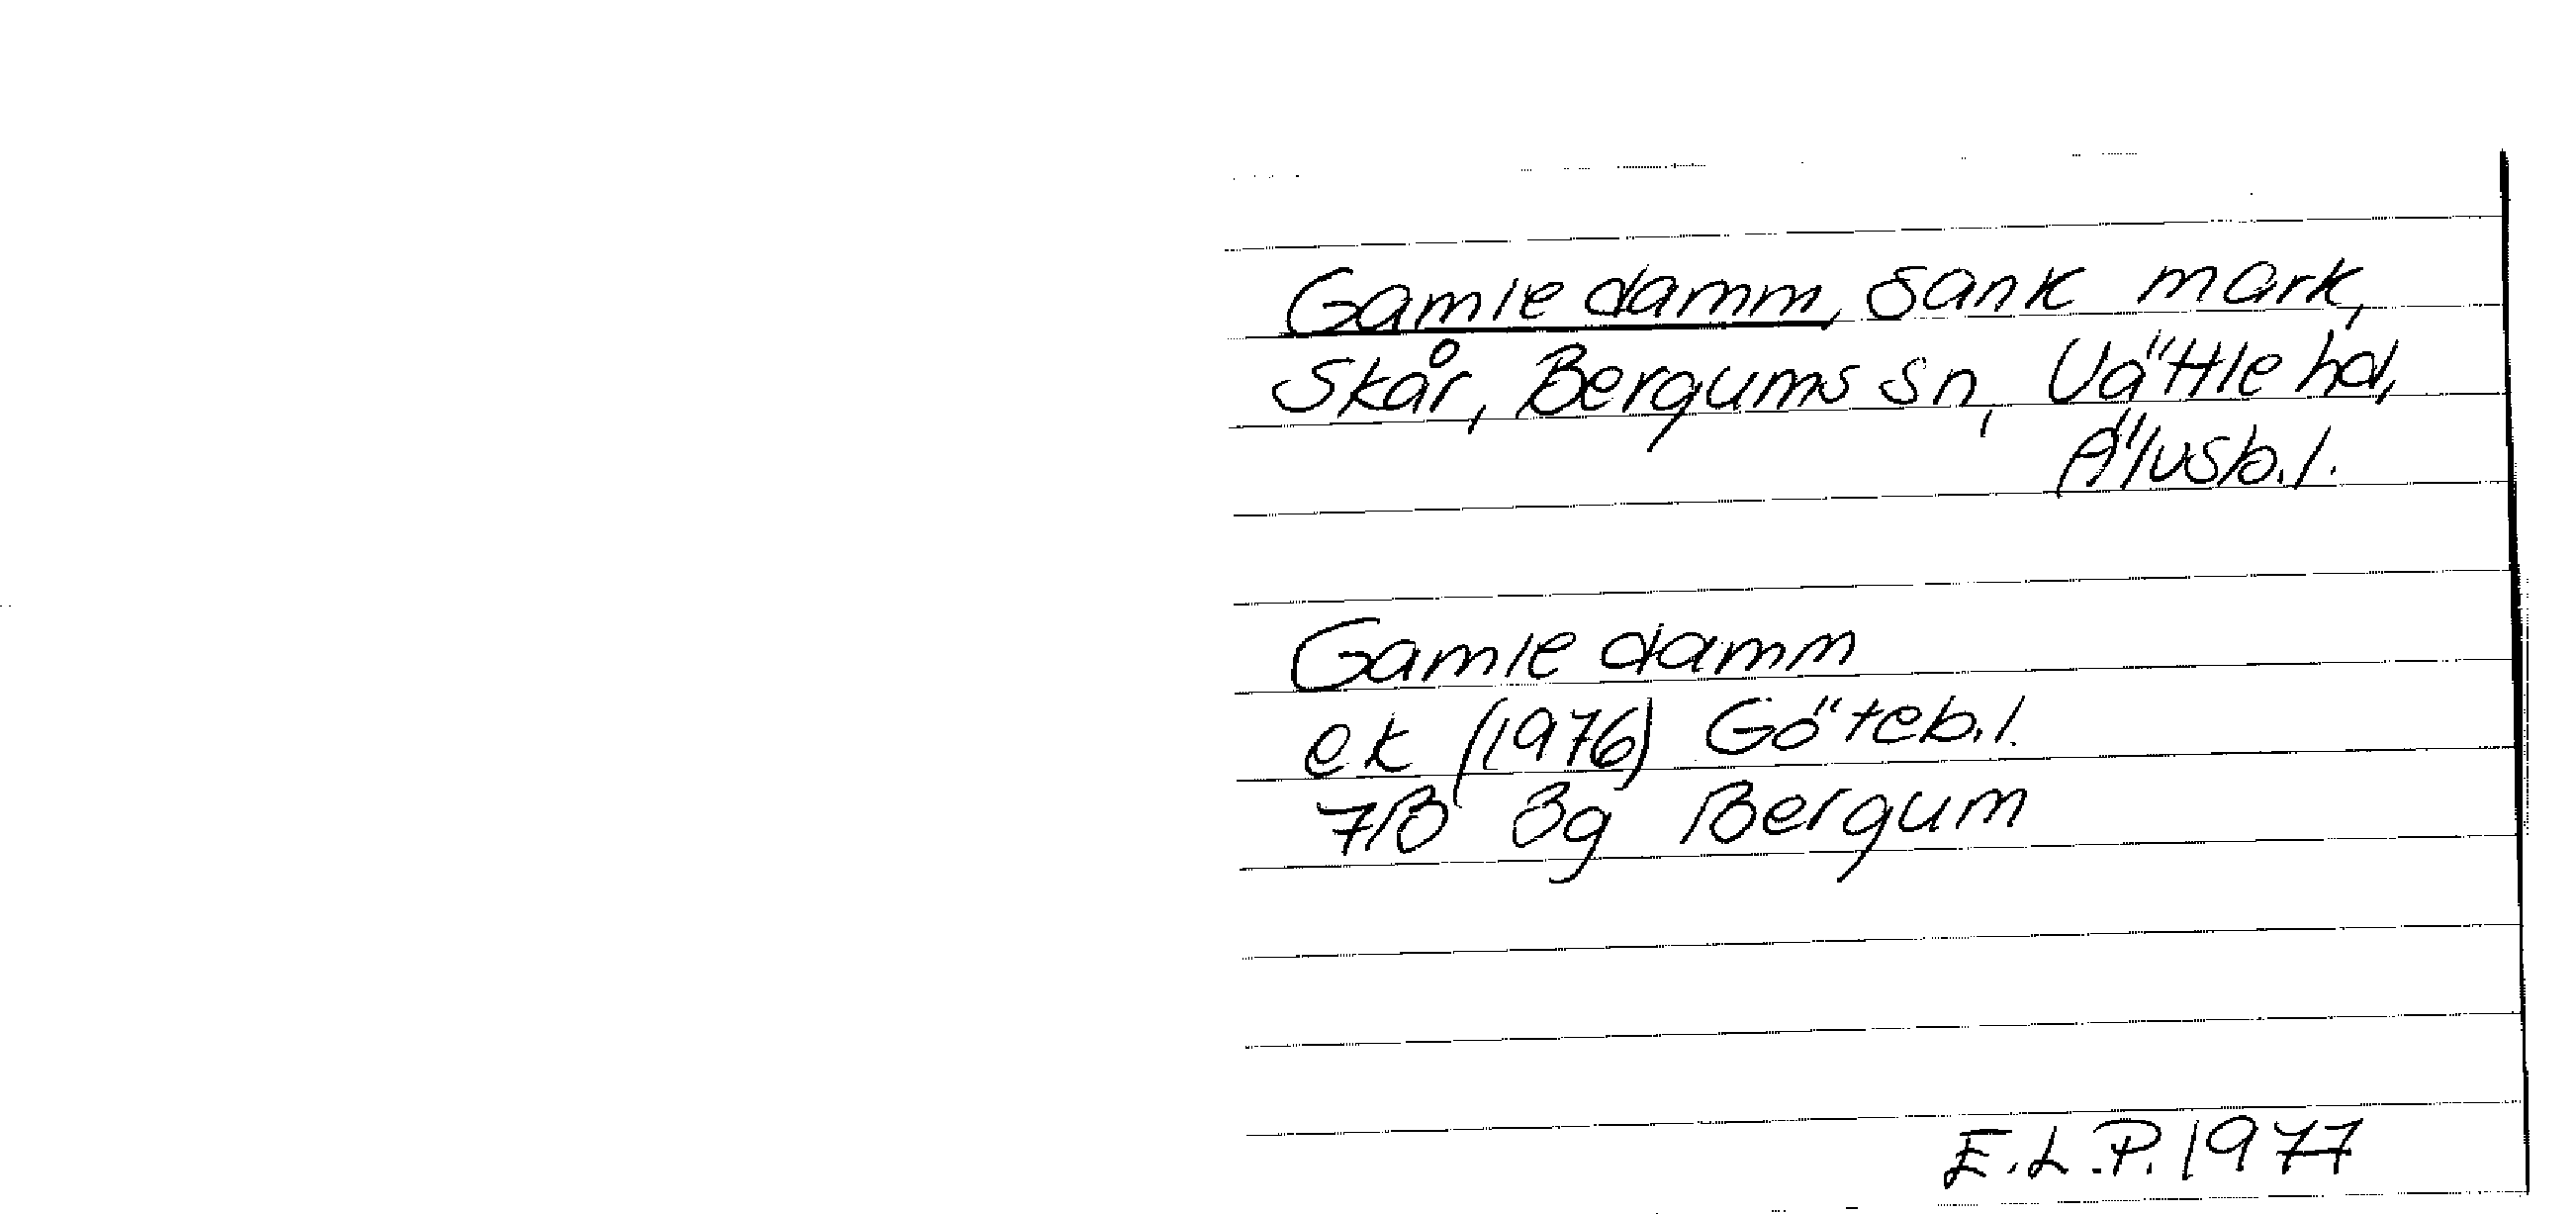 Gamle damm, sank mark,
Skår, Bergums sn, Vättle hd,
Älvsb. l.
Gamle damm
ek (1976) Göteb. l.
7B 3g Bergum
E.L.P. 1977